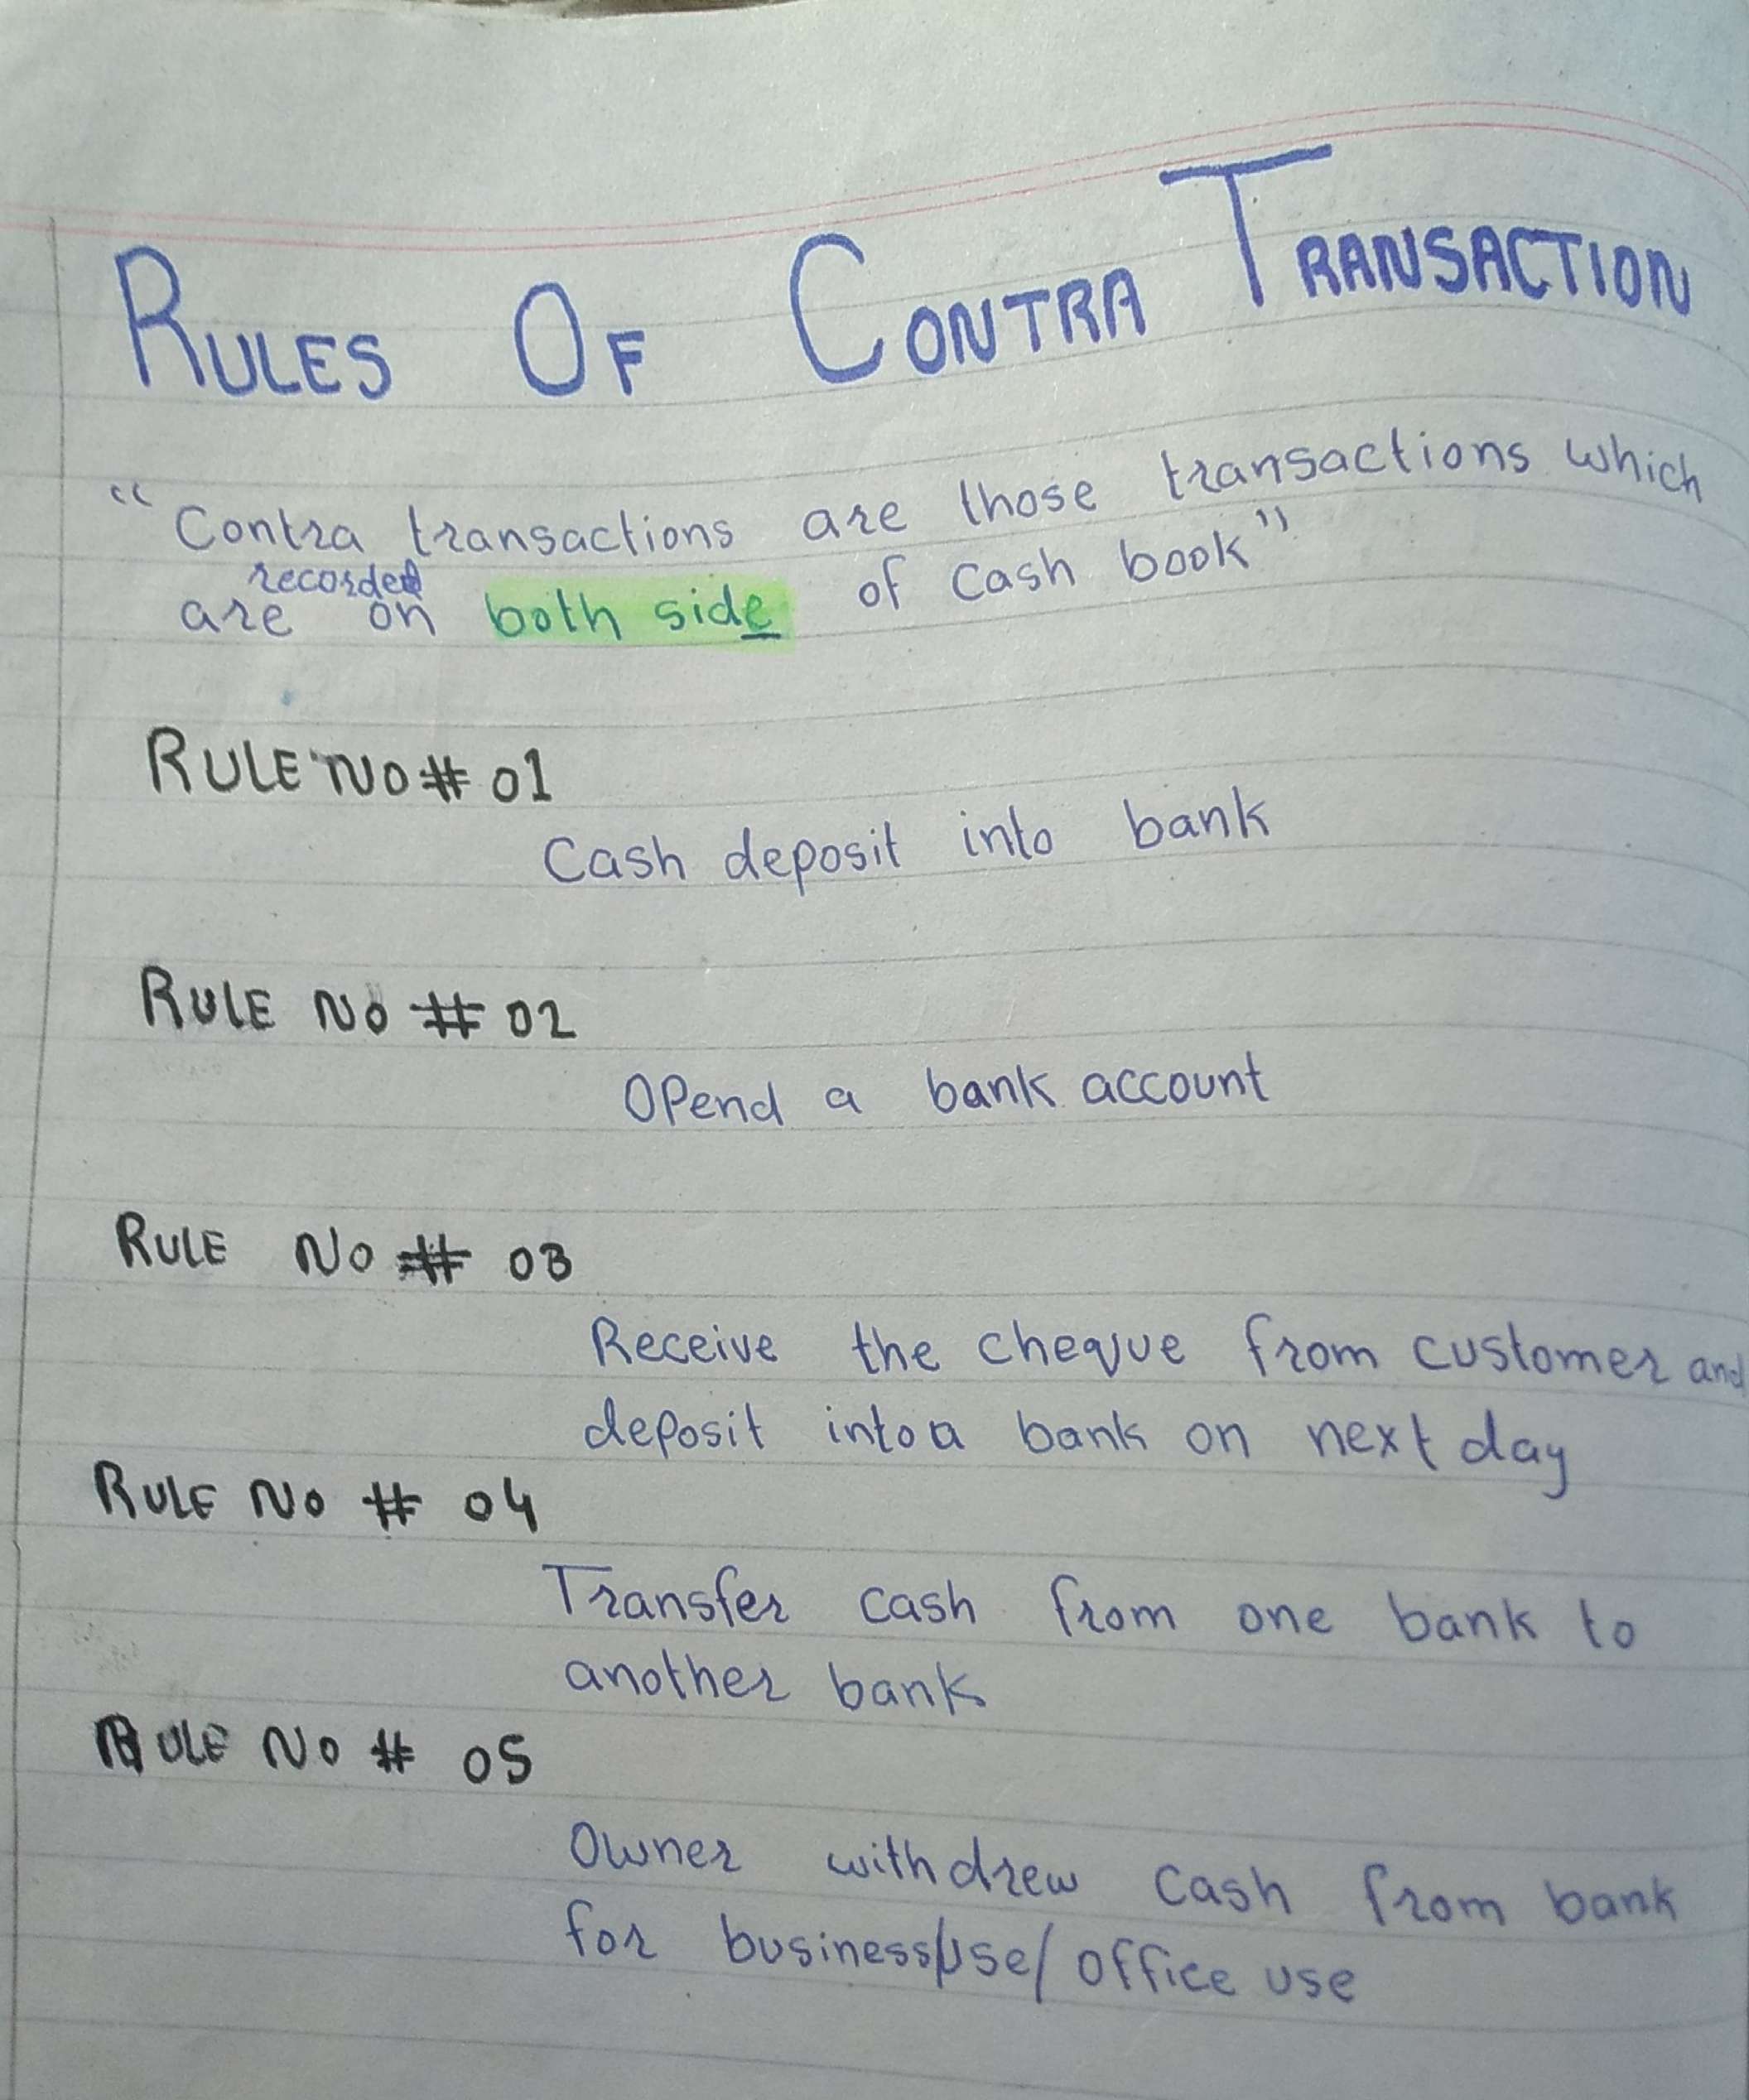 RULES OF CONTRA TRANSACTION
“Contra transactions are those transactions which
are recorded on both side of cash book”
RULE NO # 01
Cash deposit into bank
RULE NO # 02
Opend a bank account
RULE NO # 03
Receive the cheque from customer and
deposit into a bank on next day
RULE NO # 04
Transfer cash from one bank to
another bank
RULE NO # 05
Owner withdrew cash from bank
for business/use/ office use